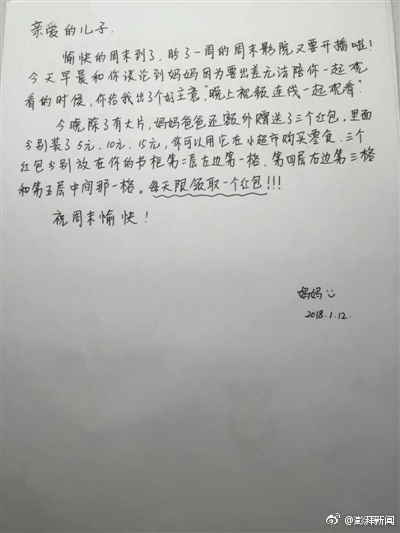 亲爱的儿子:
愉快的周末到了,盼了一周的周末影院又要开播啦!
今天早晨和你谈论到妈妈因为要出差无法陪你一起观
看的时候,你给我出了个好主意,"晚上视频连线一起观看"。
今晚除了有大片,妈妈爸爸还额外赠送了三个红包,里面
分别装了5元、10元、15元,你可以用它在小超市购买零食。三个
红包分别放在你的书柜第二层左边第一格,第四层右边第三格
和第五层中间那一格。每天限领取一个红包!!!
祝周末愉快!
妈妈
2018.1.12.
@澎湃新闻